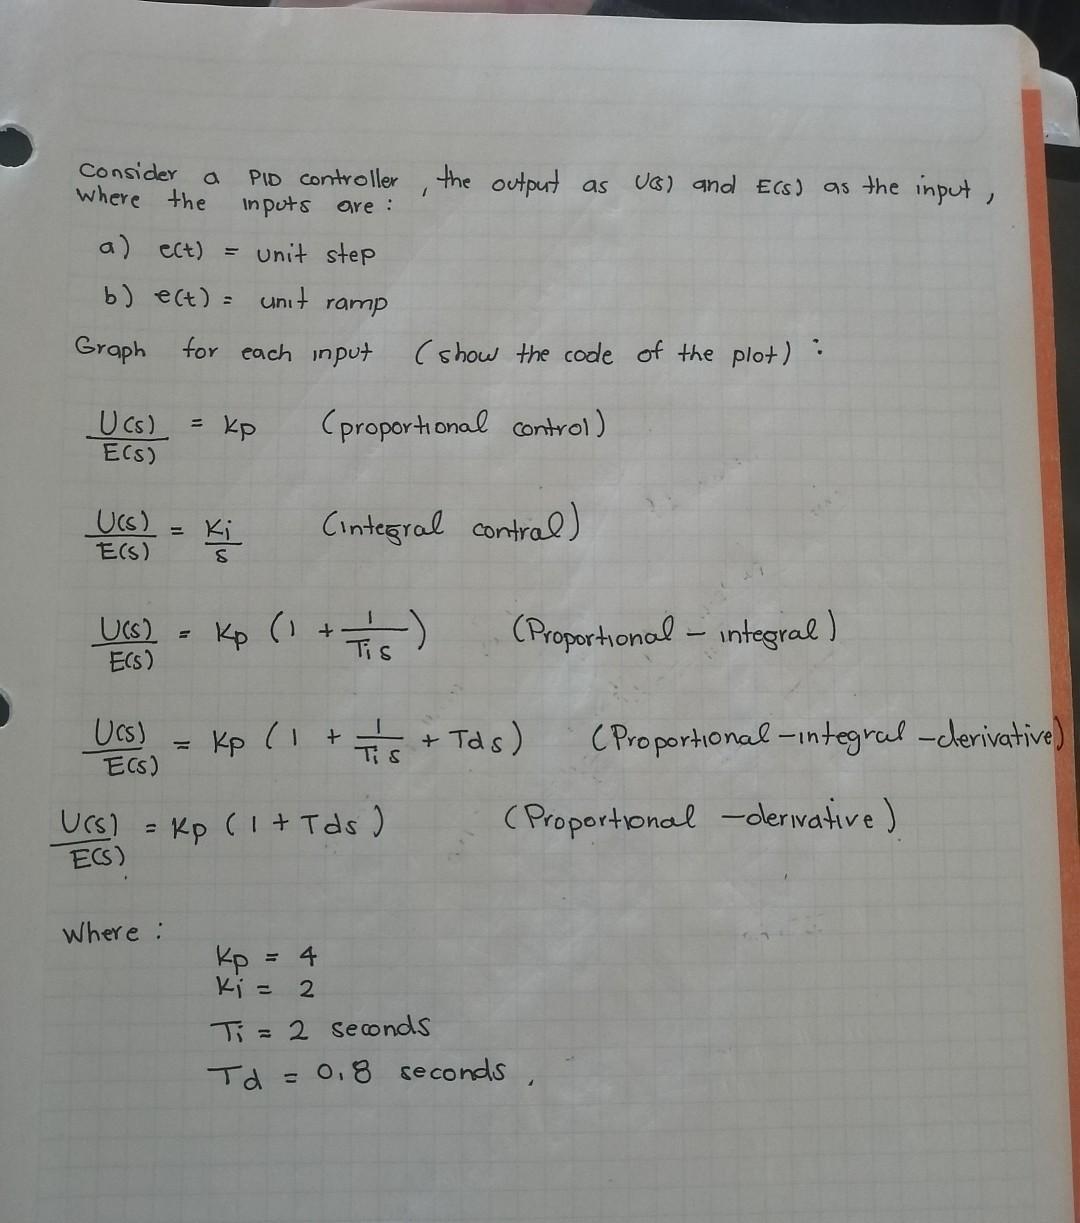 Consider a PID controller, the output as U(s) and E(s) as the input,
where the inputs are:
a) e(t) = unit step
b) e(t) = unit ramp
Graph for each input (show the code of the plot):
U(s)/E(s) = Kp (proportional control)
U(s)/E(s) = Ki/s (integral control)
U(s)/E(s) = Kp (1 + 1/Ti s) (Proportional - integral)
U(s)/E(s) = Kp (1 + 1/Ti s + Tds) (Proportional - integral - derivative)
U(s)/E(s) = Kp (1 + Tds) (Proportional - derivative)
where:
Kp = 4
Ki = 2
Ti = 2 seconds
Td = 0,8 seconds,